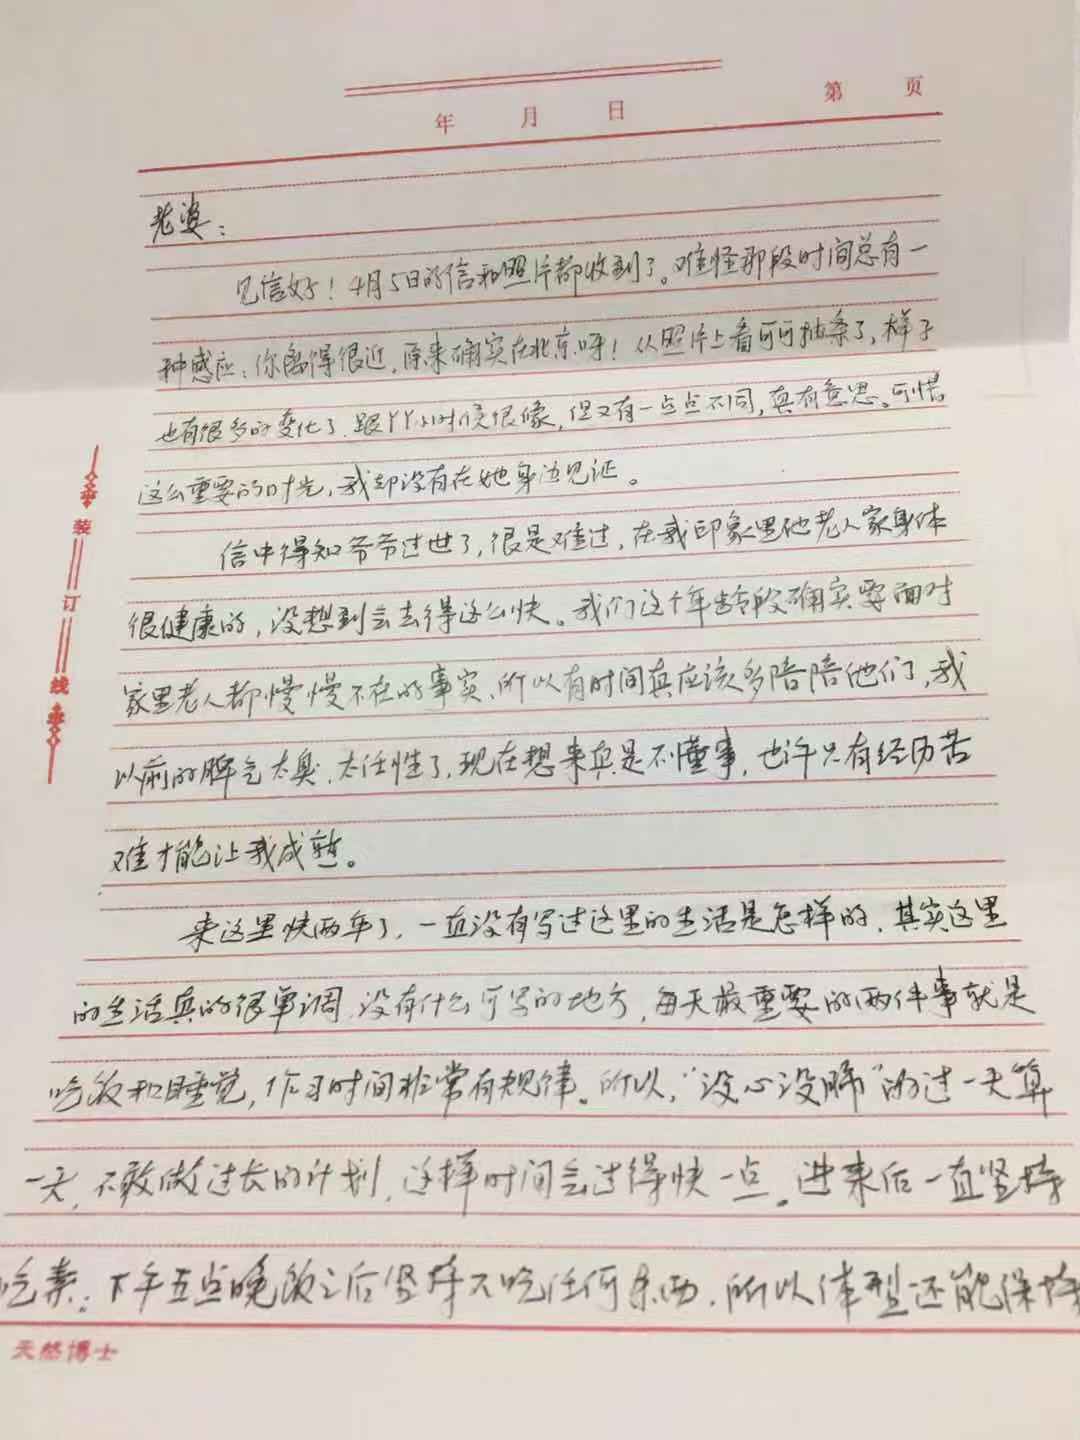 年 月 日
第 页
老婆：
见信好！4月5日的信和照片都收到了。难怪那段时间总有一
种感应：你离得很近，原来确实在北京呀！从照片上看可可抽条了，样子
也有很多的变化了，跟丫丫小时候很像，但又有一点点不同，真有意思。可惜
这么重要的时光，我却没有在她身边见证。
信中得知爷爷过世了，很是难过，在我印象里他老人家身体
很健康的，没想到会去得这么快。我们这个年龄段确实要面对
家里老人都慢慢不在的事实，所以有时间真应该多陪陪他们，我
以前的脾气太臭，太任性了，现在想来真是不懂事，也许只有经历苦
难才能让我成熟。
来这里快两年了，一直没有写过这里的生活是怎样的，其实这里
的生活真的很单调，没有什么可写的地方，每天最重要的两件事就是
吃饭和睡觉，作习时间非常有规律。所以，“没心没肺”的过一天算
一天，不敢做过长的计划，这样时间会过得快一点。进来后一直坚持
吃素；下午五点晚饭之后坚持不吃任何东西，所以体型还能保持
装订线
天然博士